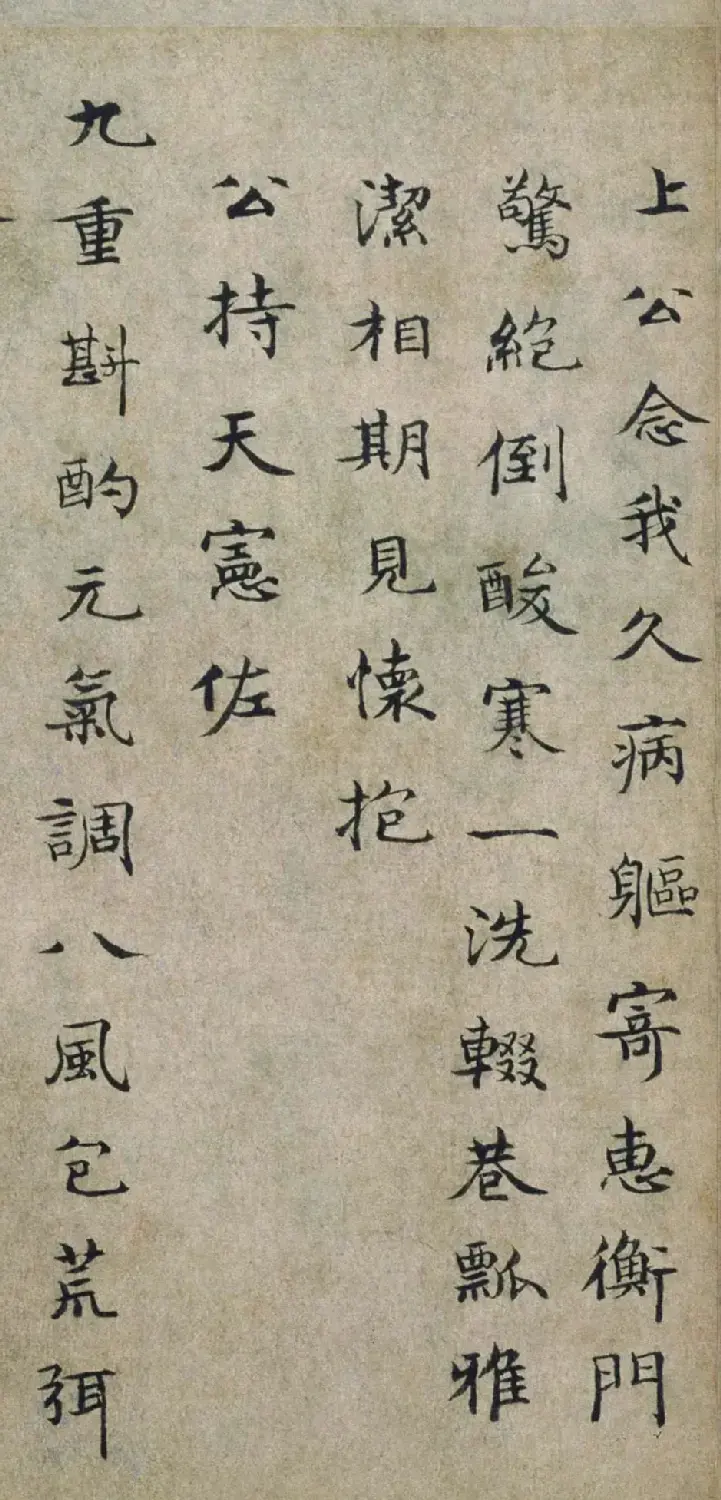 上公念我久病軀寄惠衡門
驚絕倒酸寒一洗輟巷瓢雅
潔相期見懷抱
公持天憲佐
九重斟酌元氣調八風包荒弭